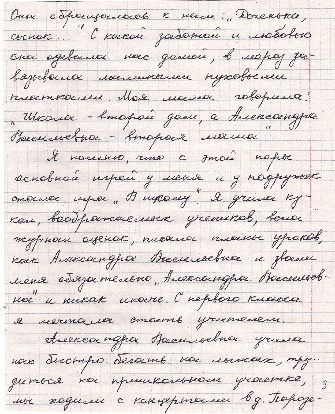 Она обращалась к нам: „Доченька,
сынок..." С какой заботой и любовью
она одевала нас домой, в мороз за-
вязывала мамиными пуховыми
платками Моя мама говорила:
„Школа - второй дом, а Александра
Васильевна - вторая мама"
Я помню, что с этой поры
основной игрой у меня и у подружек
стала игра „В школу". Я учила ку-
кол, воображаемых учеников, вела
журнал оценок, писала планы уроков,
как Александра Васильевна и звали
меня обязательно „Александра Васильев-
на" и никак иначе. С первого класса
я мечтала стать учителем.
Александра Васильевна учила
нас быстро бегать на лыжах, тру-
диться на пришкольном участке,
мы ходили с концертами в д. Порозо-
3